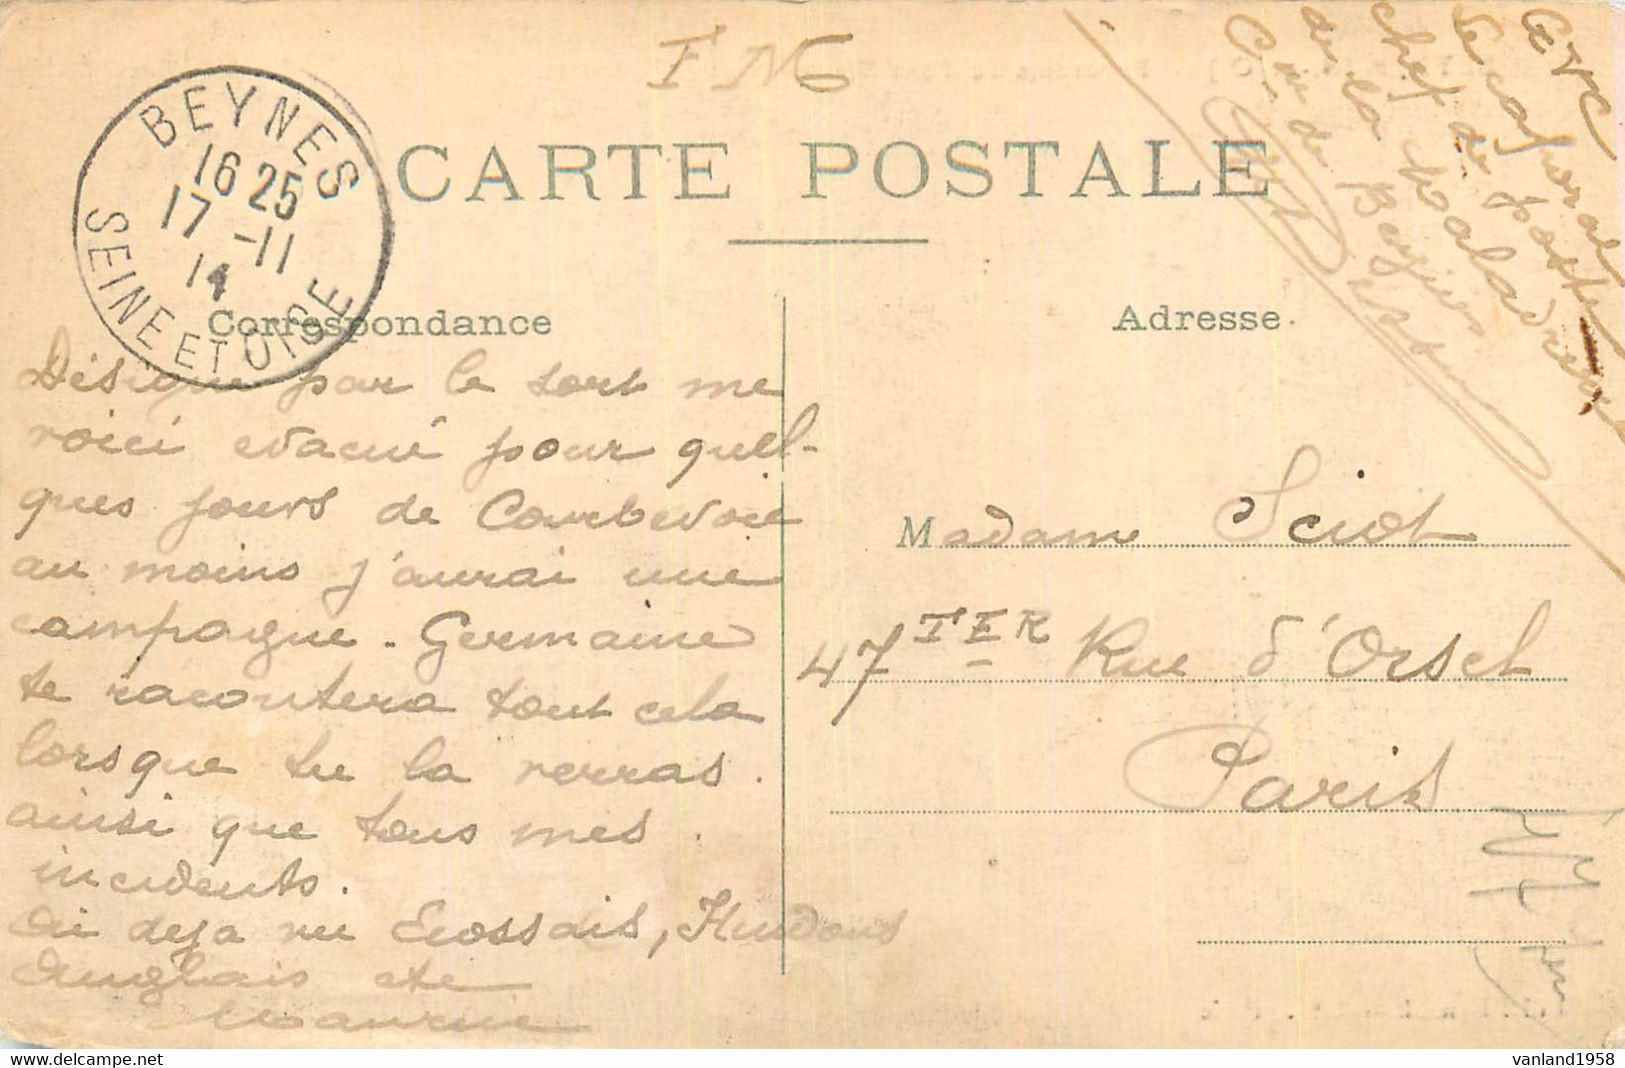 F M
GVC
Le caporal
chef de poste
de la
Cne de Beynes
BEYNES
16 25
17 -11
14
SEINE ET OISE
CARTE POSTALE
Correspondance
Adresse
Désigné par le sort me
voici evacué pour quel-
ques jours de Courbevoie
au moins j'aurai une
campagne. Germaine
te racontera tout cela
lorsque tu la verras.
ainsi que tous mes
incidents.
Ai deja vu Ecossais, Hindous
Anglais etc
Maurice
Madame Sciot
47 TER Rue d'Orsel
Paris
vanland1958